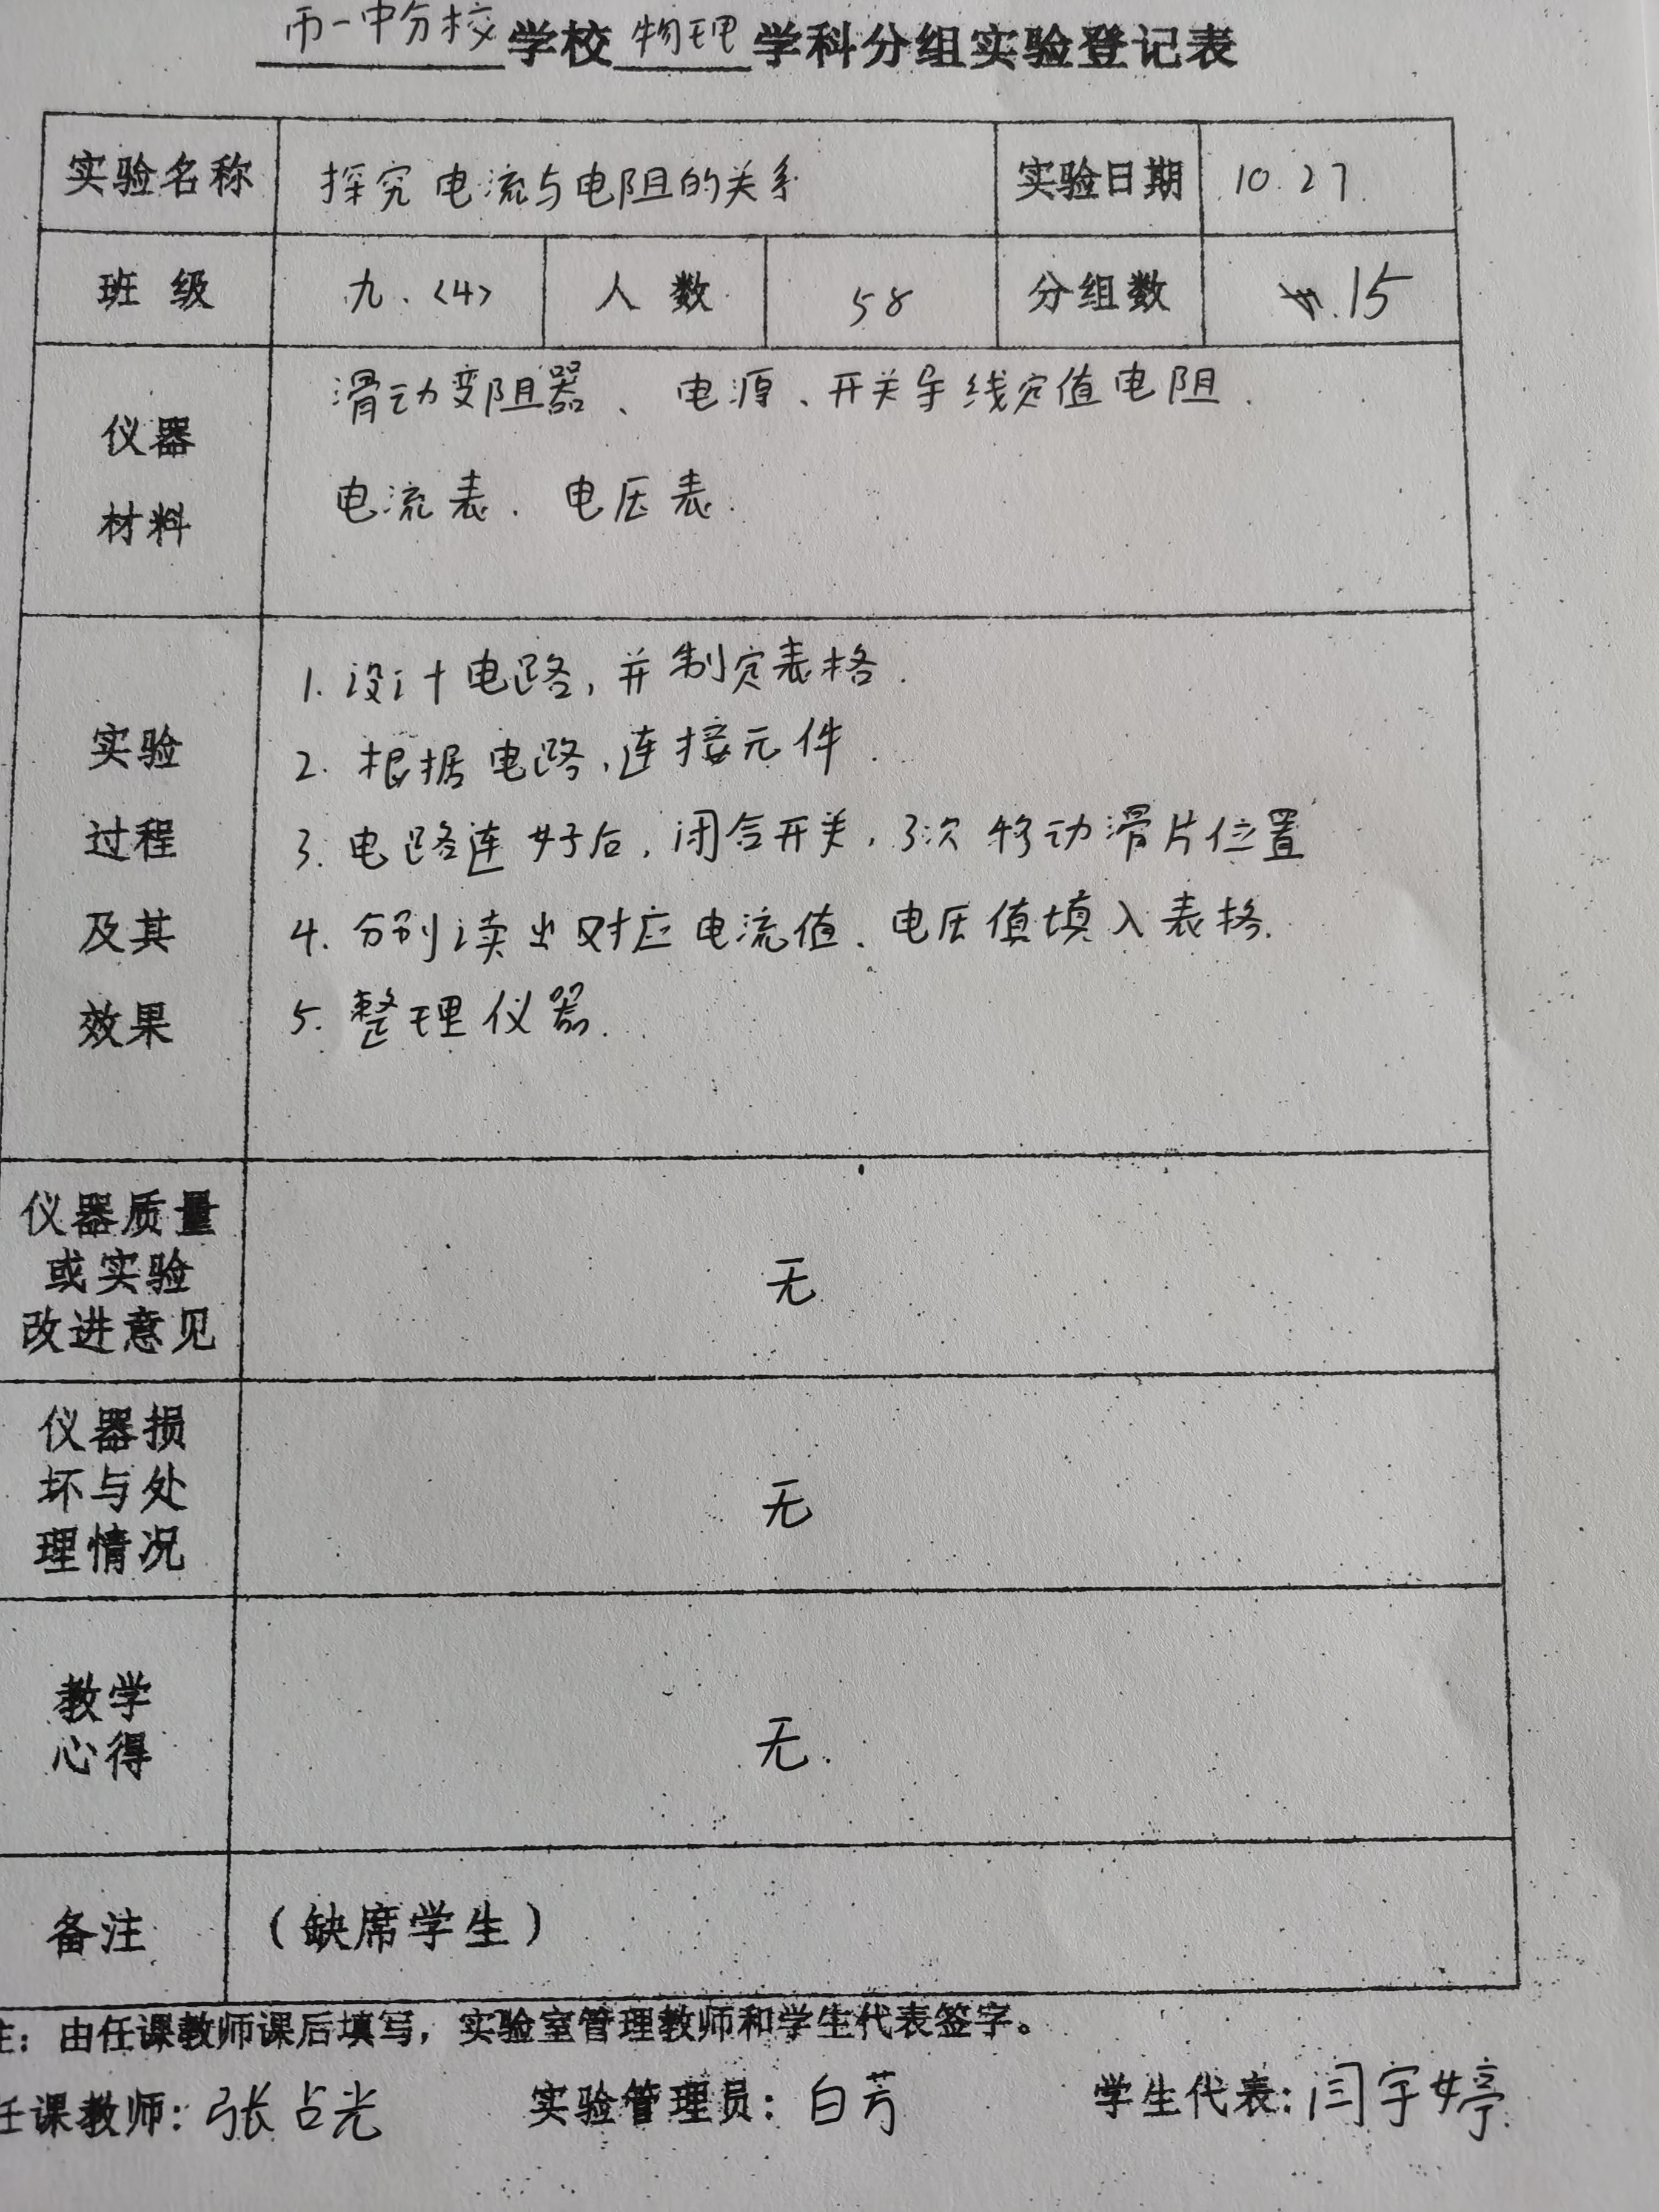 市一中分校学校物理学科分组实验登记表
实验名称 探究电流与电阻的关系 实验日期 10.27.
班级 九.<4> 人数 58 分组数 15
仪器材料
滑动变阻器、电源、开关导线定值电阻.
电流表.电压表.
实验过程及其效果
1.设计电路,并制定表格.
2.根据电路,连接元件.
3.电路连好后,闭合开关,3次移动滑片位置
4.分别读出对应电流值、电压值填入表格.
5.整理仪器.
仪器质量
或实验
改进意见
无
仪器损
坏与处
理情况
无
教学
心得
无.
备注 (缺席学生)
注:由任课教师课后填写,实验室管理教师和学生代表签字。
任课教师:张占光 实验管理员:白芳 学生代表:闫宇婷